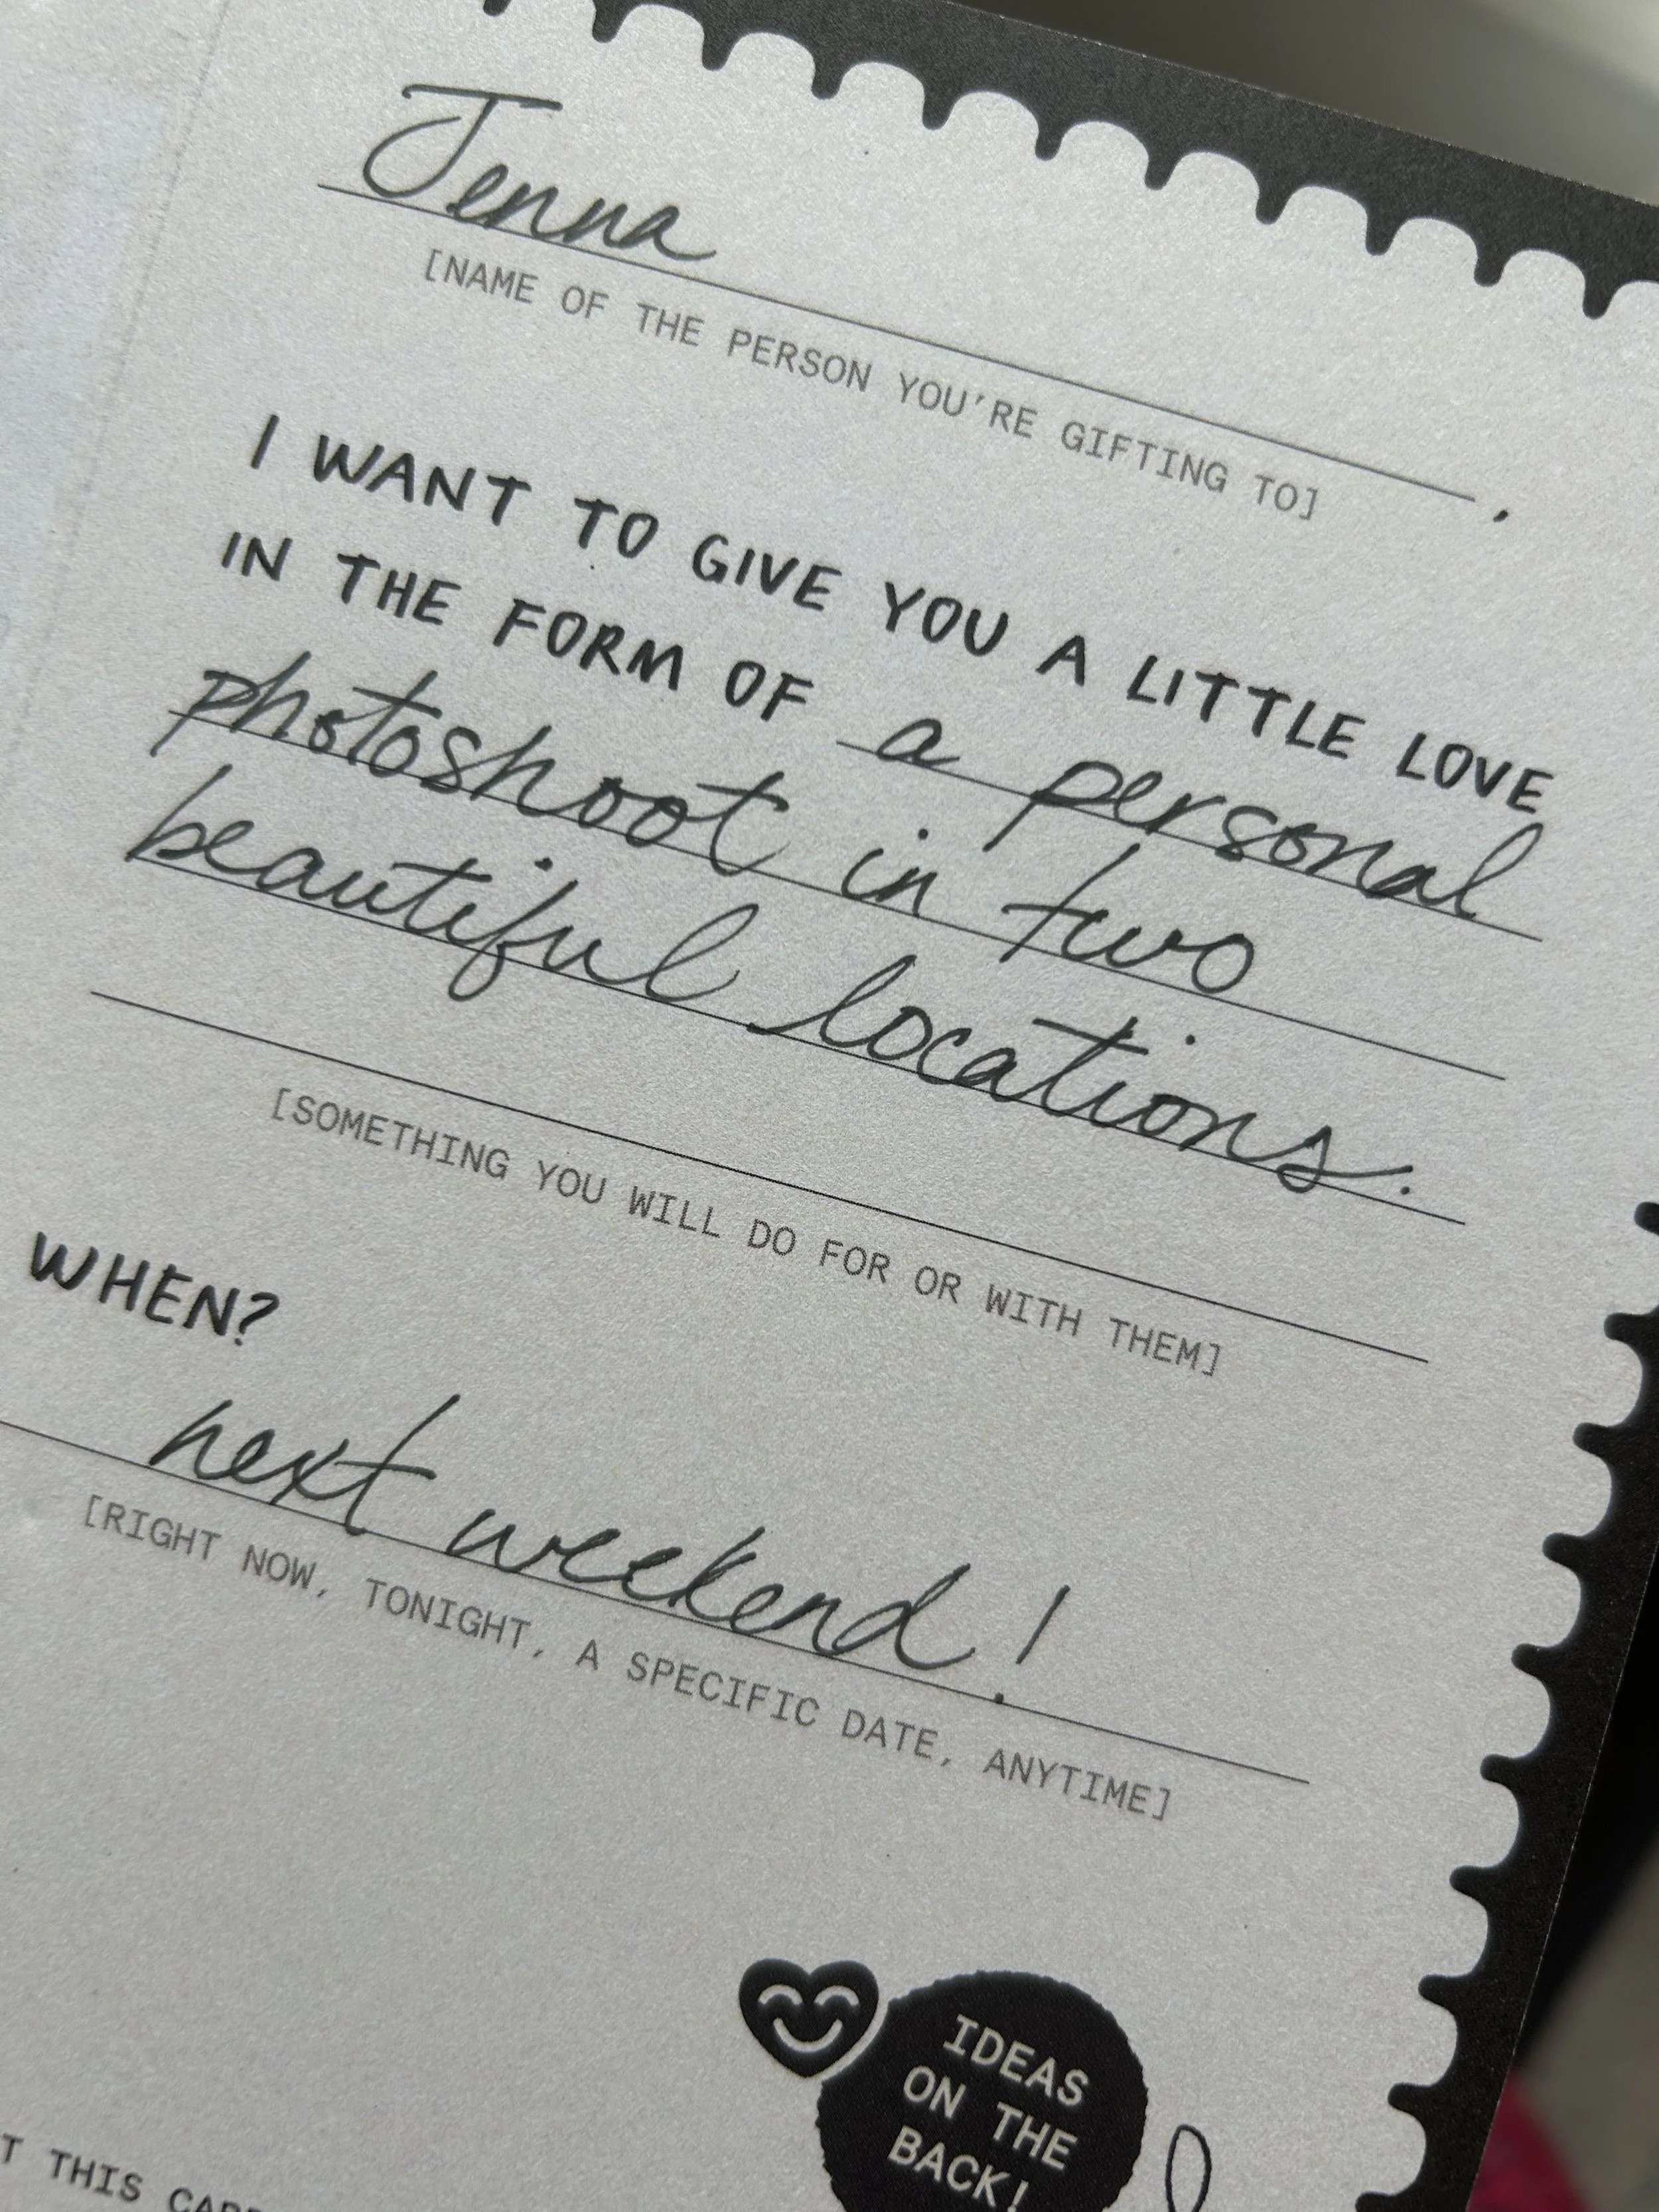 Jenna ,
[NAME OF THE PERSON YOU'RE GIFTING TO]
I WANT TO GIVE YOU A LITTLE LOVE
IN THE FORM OF a personal
photoshoot in two
beautiful locations.
[SOMETHING YOU WILL DO FOR OR WITH THEM]
WHEN?
next weekend!
[RIGHT NOW, TONIGHT, A SPECIFIC DATE, ANYTIME]
IDEAS
ON THE
BACK!
THIS